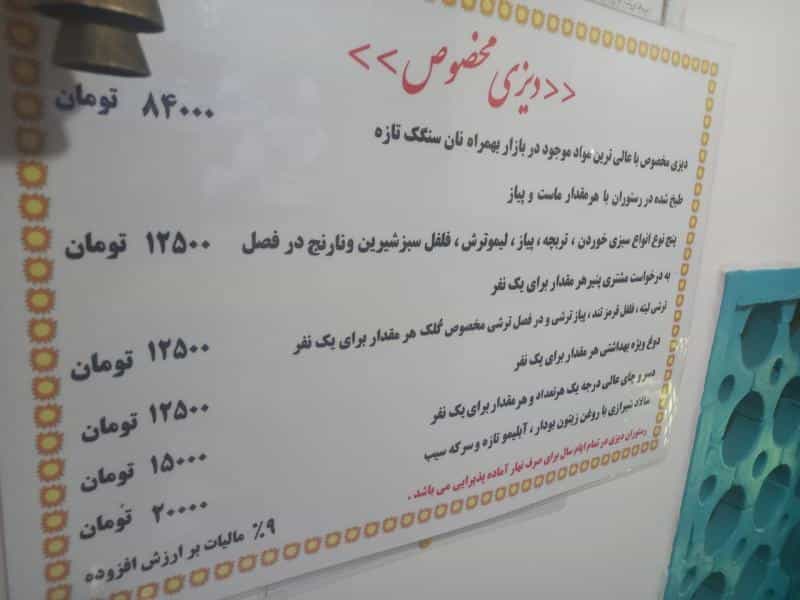 <<دیزی مخصوص>>
۸۴۰۰۰ تومان
دیزی مخصوص با عالی ترین مواد موجود در بازار بهمراه نان سنگک تازه
طبخ شده در رستوران با هر مقدار ماست و پیاز
پنج نوع انواع سبزی خوردن ، تربچه ، پیاز ، لیموترش ، فلفل سبز شیرین ونارنج در فصل ۱۲۵۰۰ تومان
به درخواست مشتری پنیر هر مقدار برای یک نفر
ترشی لیته ، فلفل قرمز تند ، پیاز ترشی و در فصل ترشی مخصوص گلک هر مقدار برای یک نفر ۱۲۵۰۰ تومان
دوغ ویژه بهداشتی هر مقدار برای یک نفر ۱۲۵۰۰ تومان
دسر و چای عالی درجه یک هر تعداد و هر مقدار برای یک نفر ۱۵۰۰۰ تومان
سالاد شیرازی با روغن زیتون بودار ، آبلیمو تازه و سرکه سیب ۲۰۰۰۰ تومان
رستوران دیزی در تمام ایام سال برای صرف نهار آماده پذیرایی می باشد .
۹٪ مالیات بر ارزش افزوده